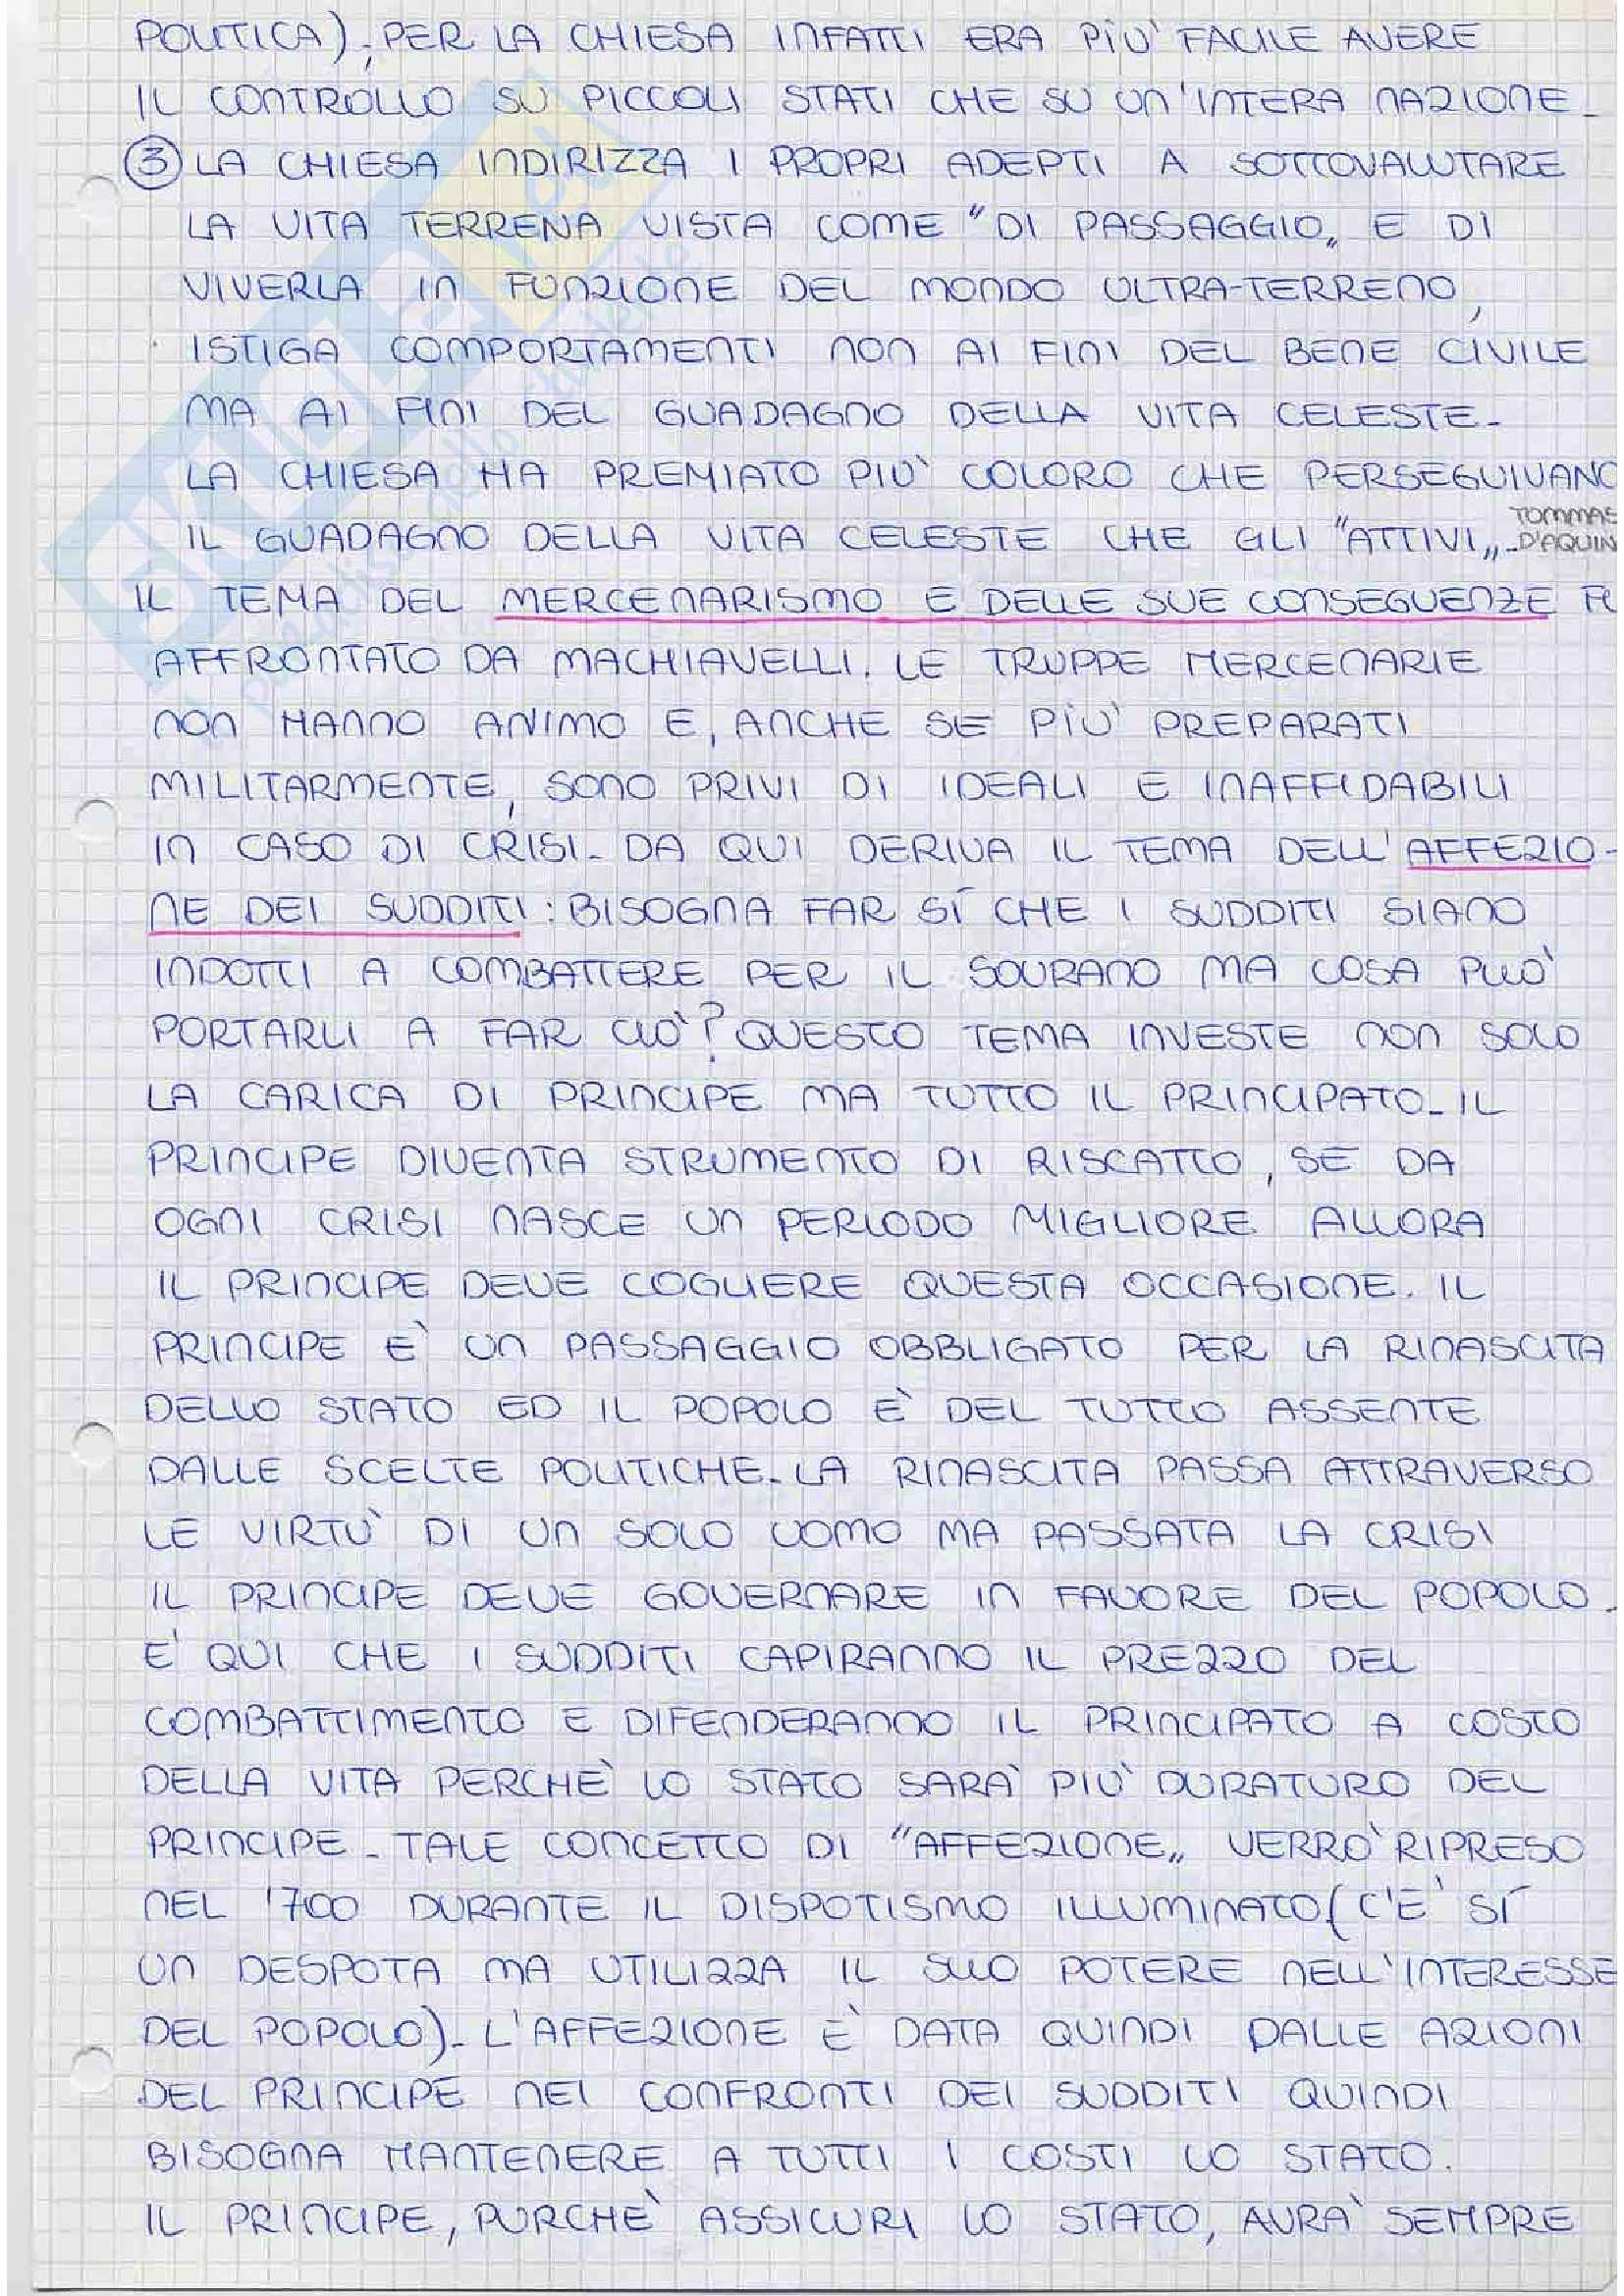 POLITICA); PER LA CHIESA INFATTI ERA PIÙ FACILE AVERE
IL CONTROLLO SU PICCOLI STATI CHE SU UN'INTERA NAZIONE.
③ LA CHIESA INDIRIZZA I PROPRI ADEPTI A SOTTOVALUTARE
LA VITA TERRENA VISTA COME "DI PASSAGGIO„ E DI
VIVERLA IN FUNZIONE DEL MONDO ULTRA-TERRENO,
ISTIGA COMPORTAMENTI NON AI FINI DEL BENE CIVILE
MA AI FINI DEL GUADAGNO DELLA VITA CELESTE.
LA CHIESA HA PREMIATO PIÙ COLORO CHE PERSEGUIVANO
IL GUADAGNO DELLA VITA CELESTE CHE GLI "ATTIVI„. TOMMAS D'AQUIN
IL TEMA DEL MERCENARISMO E DELLE SUE CONSEGUENZE FU
AFFRONTATO DA MACHIAVELLI. LE TRUPPE MERCENARIE
NON HANNO ANIMO E, ANCHE SE PIÙ PREPARATI
MILITARMENTE, SONO PRIVI DI IDEALI E INAFFIDABILI
IN CASO DI CRISI. DA QUI DERIVA IL TEMA DELL'AFFEZIO-
NE DEI SUDDITI: BISOGNA FAR SÍ CHE I SUDDITI SIANO
INDOTTI A COMBATTERE PER IL SOVRANO MA COSA PUÒ
PORTARLI A FAR CIÒ? QUESTO TEMA INVESTE NON SOLO
LA CARICA DI PRINCIPE MA TUTTO IL PRINCIPATO. IL
PRINCIPE DIVENTA STRUMENTO DI RISCATTO, SE DA
OGNI CRISI NASCE UN PERIODO MIGLIORE ALLORA
IL PRINCIPE DEVE COGLIERE QUESTA OCCASIONE. IL
PRINCIPE È UN PASSAGGIO OBBLIGATO PER LA RINASCITA
DELLO STATO ED IL POPOLO È DEL TUTTO ASSENTE
DALLE SCELTE POLITICHE. LA RINASCITA PASSA ATTRAVERSO
LE VIRTÙ DI UN SOLO UOMO MA PASSATA LA CRISI
IL PRINCIPE DEVE GOVERNARE IN FAVORE DEL POPOLO.
E' QUI CHE I SUDDITI CAPIRANNO IL PREZZO DEL
COMBATTIMENTO E DIFENDERANNO IL PRINCIPATO A COSTO
DELLA VITA PERCHÈ LO STATO SARÀ PIÙ DURATURO DEL
PRINCIPE. TALE CONCETTO DI "AFFEZIONE„ VERRÒ RIPRESO
NEL '700 DURANTE IL DISPOTISMO ILLUMINATO (C'E' SÍ
UN DESPOTA MA UTILIZZA IL SUO POTERE NELL'INTERESSE
DEL POPOLO). L'AFFEZIONE È DATA QUINDI DALLE AZIONI
DEL PRINCIPE NEI CONFRONTI DEI SUDDITI QUINDI
BISOGNA MANTENERE A TUTTI I COSTI LO STATO.
IL PRINCIPE, PURCHÈ ASSICURI LO STATO, AVRÀ SEMPRE